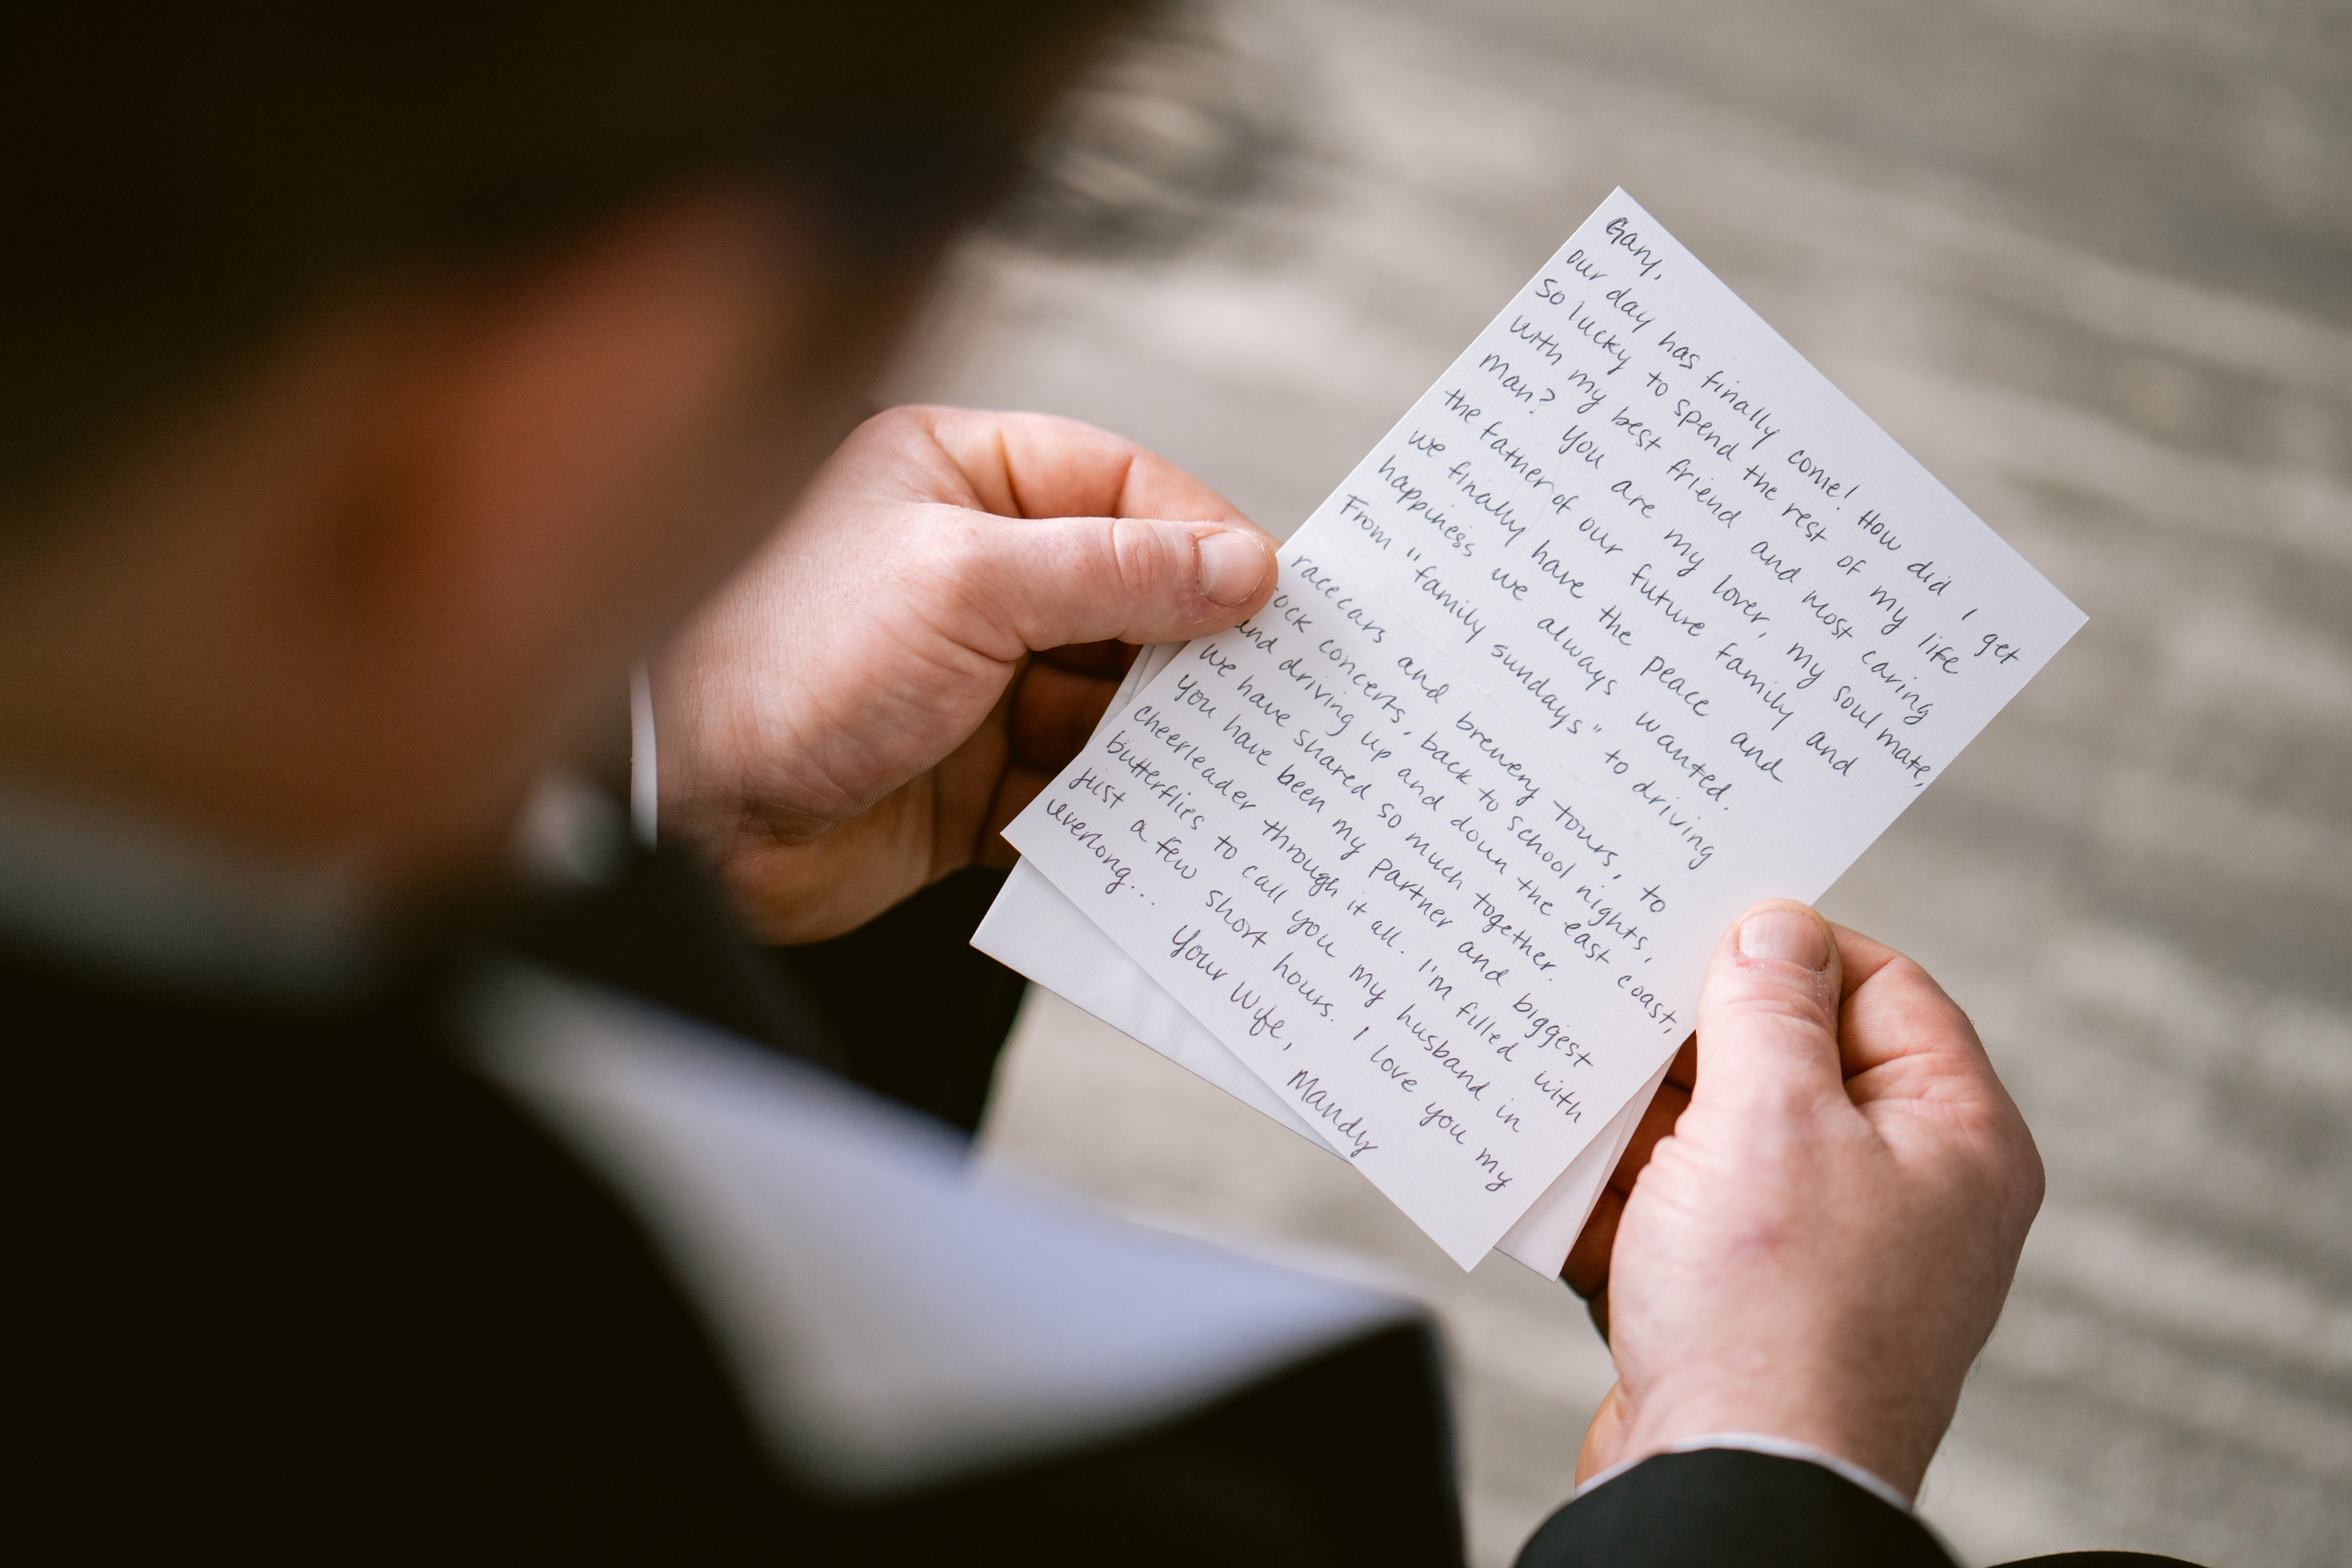 Gary,
our day has finally come! How did I get
so lucky to spend the rest of my life
with my best friend and most caring
man? You are my lover, my soul mate,
the father of our future family and
we finally have the peace and
happiness we always wanted.
From "family sundays" to driving
racecars and brewery tours, to
rock concerts, back to school nights,
and driving up and down the east coast,
we have shared so much together.
You have been my partner and biggest
cheerleader through it all. I'm filled with
butterflies to call you my husband in
just a few short hours. I love you my
everlong...
Your Wife,
Mandy